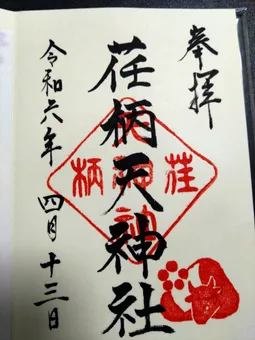 奉拝
荏柄天神社
荏柄天神
令和六年 四月十三日